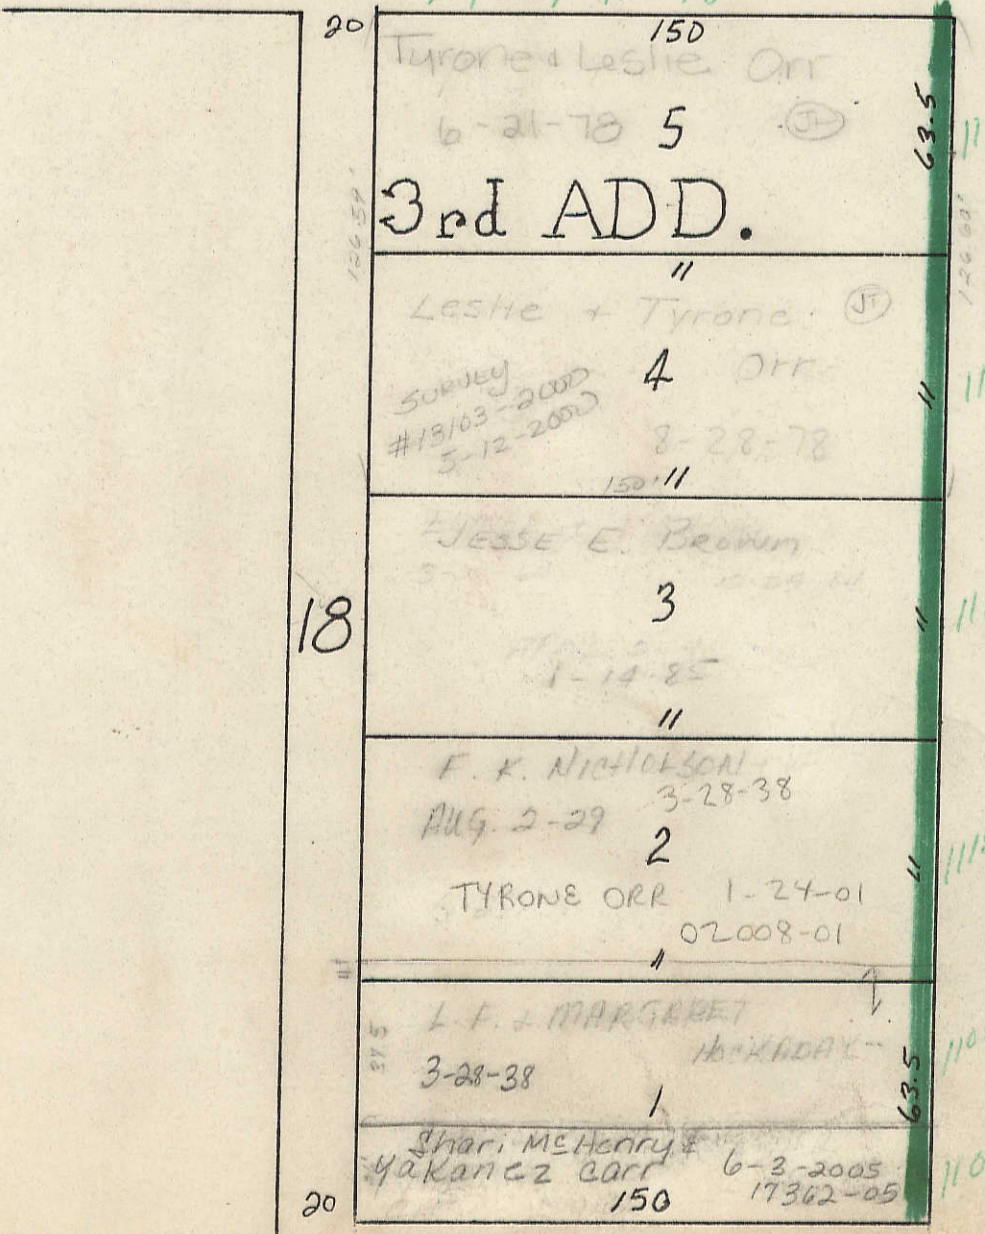 20
150
Tyrone & Leslie Orr
6-21-78
5
JT
63.5
3rd ADD.
126.59'
126.60'
"
Leslie + Tyrone
JT
Orr
4
"
SURVEY
#13103-2000
5-12-2000
8-28-78
150' "
JESSE E. Brown
18
3
"
1-14-85
"
F. K. NICHOLSON
3-28-38
AUG. 2-29
2
"
TYRONE ORR 1-24-01
02008-01
"
L. F. & MARGARET
HOCKADAY
37.5
3-28-38
63.5
1
Shari McHenry &
Yakanez Carr
6-3-2005
17362-05
20
150